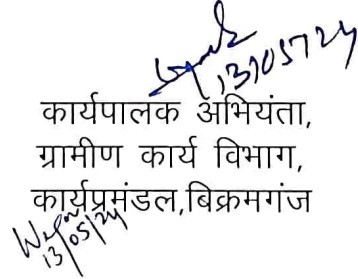 13/05/24
कार्यपालक अभियंता,
ग्रामीण कार्य विभाग,
कार्यप्रमंडल,बिक्रमगंज
13/05/24